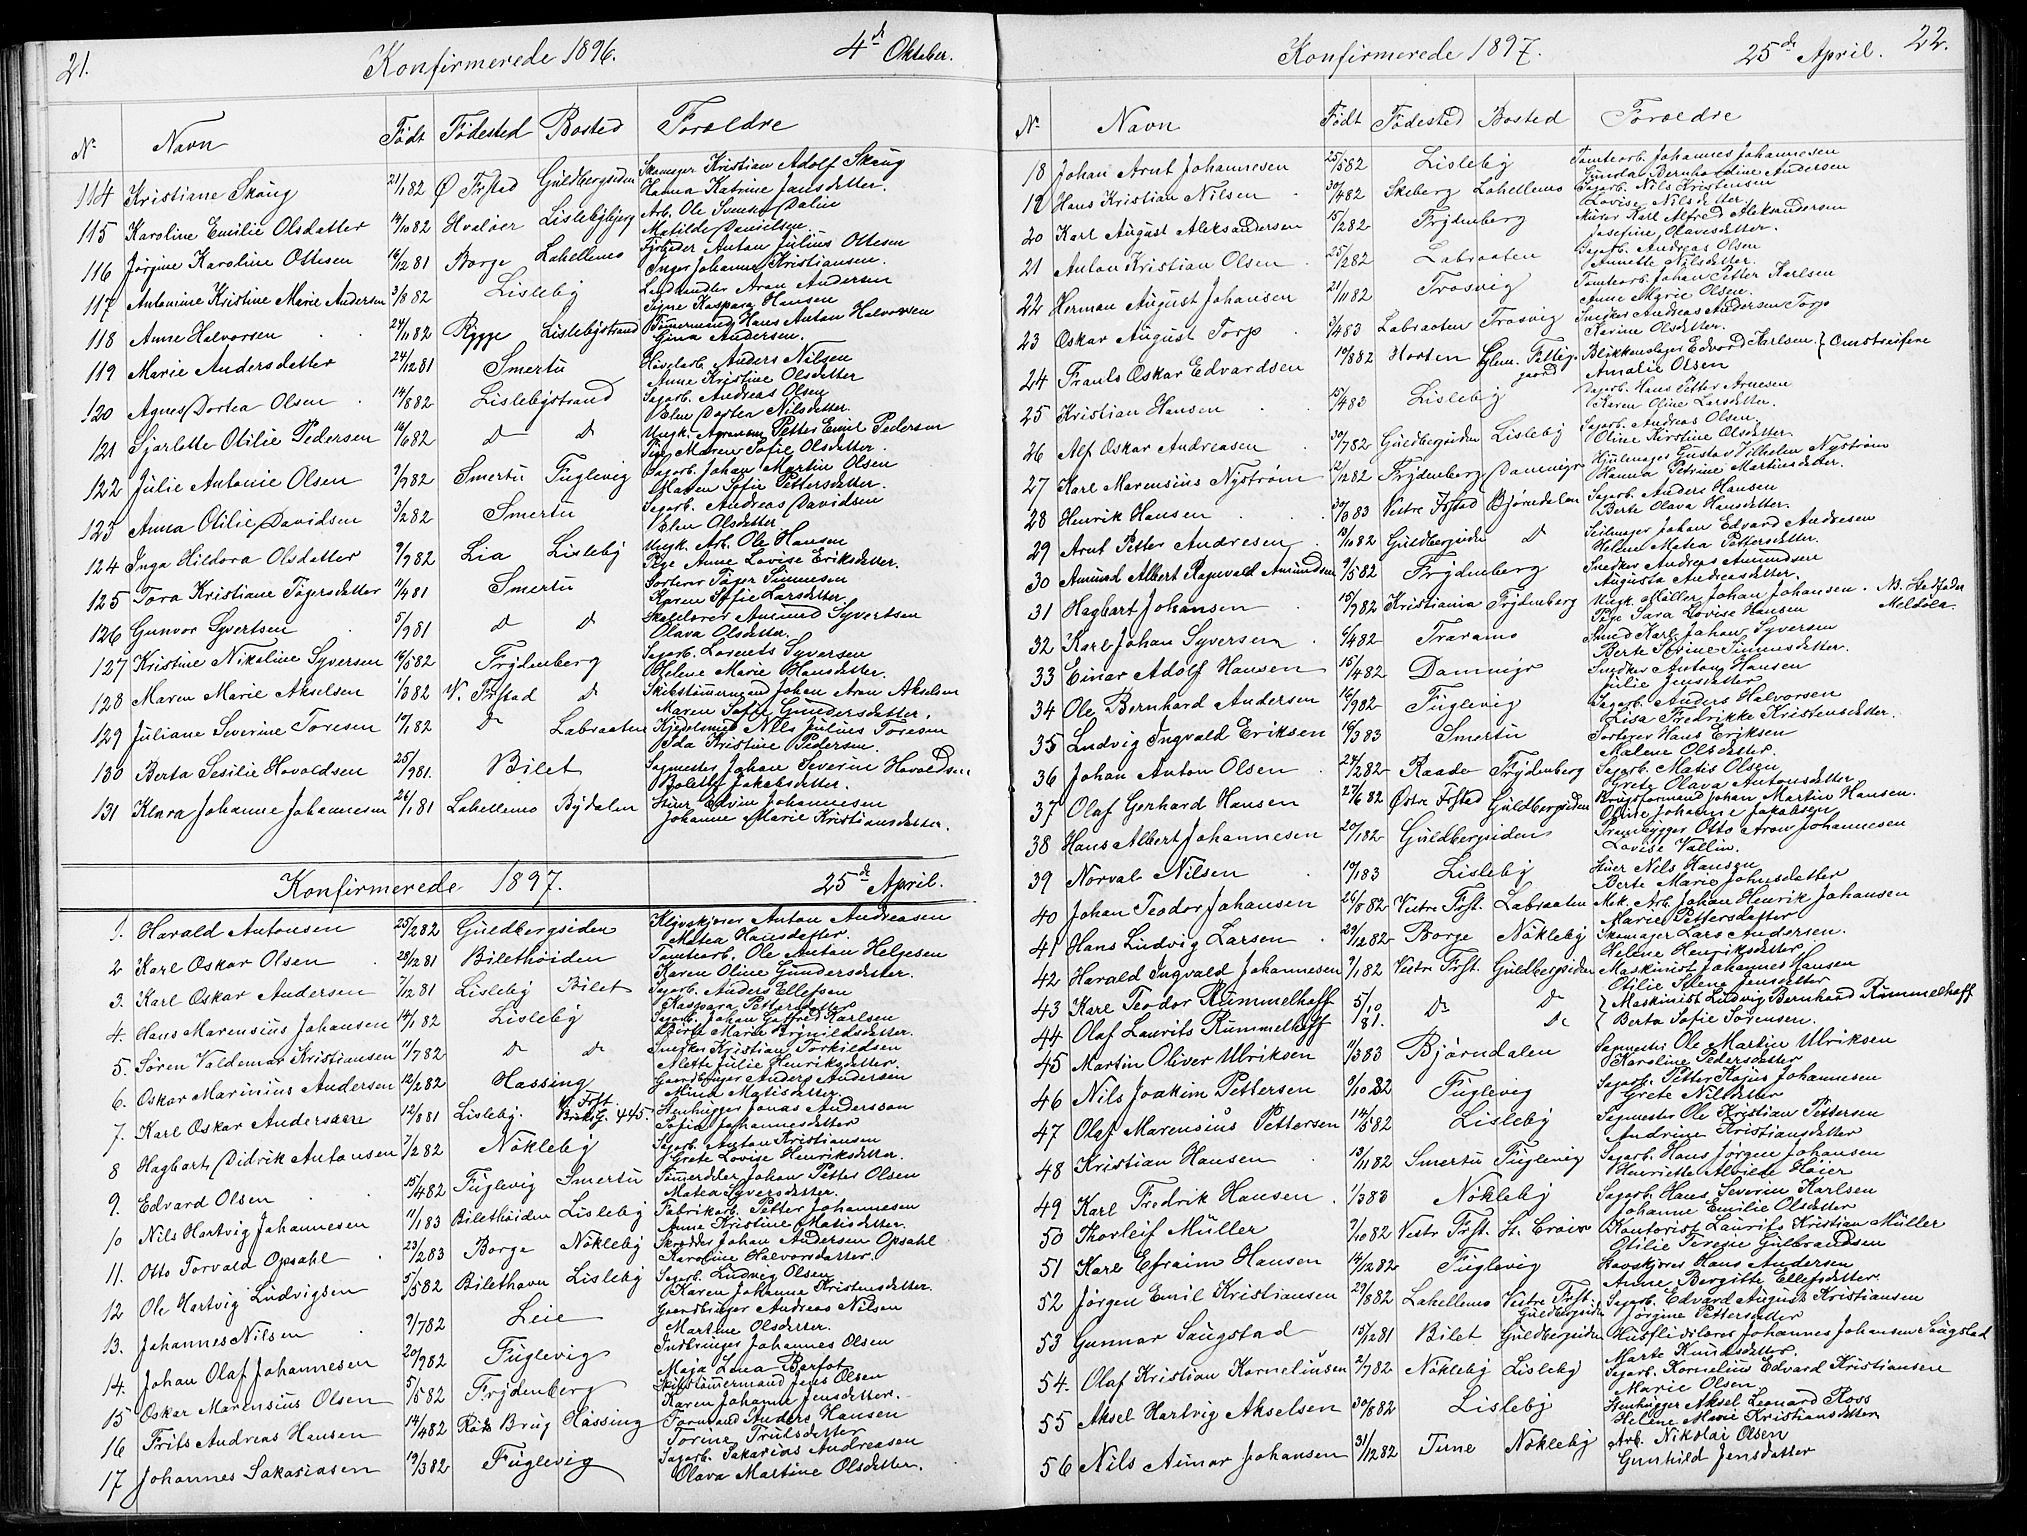 21.
Konfirmerede 1896.
4de Oktober.
Nr Navn Født Fødested Bosted Forældre
114 Kristiane Skaug 21/1 82 Ø Frstad Guldbergsiden Skomager Kristian Adolf Skaug
Hanna Katrine Jansdatter.
115 Karoline Emilie Olsdatter 14/10 82 Hvaløer Lislebybjerg Arb. Ole Svensen Dalin
Matilde Danielsen
116 Jørgine Karoline Ottesen 16/12 81 Borge Lahellemo Fyrbøder Anton Julius Ottesen
Inger Johanne Kristiansen.
117 Antomine Kristine Marie Andersen 3/8 82 Lisleby Landhandler Aron Andersen
Signe Kaspara Hansen
118 Anne Halvorsen 24/11 82 Rygge Lislebystrand Tømermand Hans Anton Halvorsen
Gina Andersen.
119 Marie Andersdatter 24/12 81 Smertu Høvelarb. Anders Nilsen
Anne Kristine Olsdatter
120 Agnes Dortea Olsen 14/8 82 Lislebystrand Sagarb. Andreas Olsen
Elen Dortea Nilsdatter.
121 Sjarlotte Otilie Pedersen 16/6 82 do do Ungk. Petter Emil Pedersen
Pige Maren Sofie Olsdatter.
122 Julie Antonie Olsen 9/9 82 Smertu Fuglevig Sagarb. Johan Martin Olsen
Maren Sofie Pettersdatter.
123 Anna Otilie Davidsen 3/2 82 Smertu Sagarb. Andreas Davidsen
Elen Olsdatter.
124 Inga Hildora Olsdatter 9/9 82 Lia Lisleby Ungk. Arb. Ole Hansen
Pige Anne Lovise Eriksdatter.
125 Tora Kristiane Tøgersdatter 11/4 81 Smertu Sorterer Tøger Simensen
Karen Sofie Larsdatter
126 Gunvor Syvertsen 5/9 81 do do Amund Syvertsen
Olava Olsdatter.
127 Kristine Nikoline Syversen 16/5 82 Frydenberg Sagarb. Lorents Syversen
Helene Marie Hansdatter.
128 Maren Marie Akselsen 1/3 82 V. Frstad do Skibstømermand Johan Aron Akselsen
Maren Sofie Gundersdatter.
129 Juliane Severine Toresen 10/1 82 do Labraaten Kjedelsmed Nils Julius Toresen
Ida Kristine Pedersen.
130 Berta Sesilie Hovoldsen 25/9 81. Bilet Sagmester Johan Severin Hovoldsen
Bolette Jakobsdatter.
131 Klara Johanne Johannesen 26/1 81 Lahellemo Bydalen Stuer Edvin Johannesen
Johanne Marie Kristiansdatter.
Konfirmerede 1897. 25de April.
1. Harald Antonsen 25/2 82 Guldbergsiden Klyvskjører Anton Andreasen
Matea Hansdatter.
2 Karl Oskar Olsen 28/12 81 Bilethøiden Tomtearb. Ole Anton Helgesen
Karen Oline Gundersdatter.
3. Karl Oskar Andersen 7/12 81 Lisleby Bilet Sagarb. Anders Ellefsen
Kaspara Pettersdatter
4. Hans Marensius Johansen 14/1 82 Lisleby Sagarb. Johan Gotfred Karlsen
Berte Marie Brynildsdatter.
5. Søren Valdemar Kristiansen 11/7 82 do do Snedker Kristian Torkildsen
Mette Julie Henriksdatter.
6. Oskar Marinius Andersen 12/2 82 Hassing Gaardbruger Anders Andersen
Mina Matisdatter.
7. Karl Oskar Anderssen 12/8 81 Lisleby. V. Frst. 445 Stenhugger Jonas Andersson
Sofia Johannesdatter
8 Hagbart Didrik Antonsen 7/2 82 Nøkleby Sagarb. Anton Kristiansen
Grete Lovise Henriksdatter.
9. Edvard Olsen 15/4 82 Fuglevig Smertu Johan Petter Olsen
Matea Syversdatter.
10 Nils Hartvig Johannesen 11/1 83 Bilethøiden Lisleby Fabrikarb. Petter Johannesen
Anne Kristine Matisdatter.
11. Otto Torvald Opsahl 23/2 83 Borge Nøkleby Skrædder Johan Andersen Opsahl
Karoline Halvorsdatter.
12 Ole Hartvig Ludvigsen 5/5 82 Bilethavn Lisleby Sagarb. Ludvig Olsen
Karen Johanne Kristensdatter.
13. Johannes Nilsen 9/7 82 Leie Gaardbruger Andreas Nilsen
Martine Olsdatter.
14. Johan Olaf Johannesen 20/9 82 Fuglevig Indbringer Johannes Olsen
Maja Lena Barfot
15 Oskar Marensius Olsen 5/5 82 Frydenberg Skibstømermand Jens Olsen
Karen Johanne Jensdatter.
16 Frits Andreas Hansen 14/4 82 Røds Brug Hassing Formand Anders Hansen
Torine Trulsdatter
17 Johannes Sakariasen 19/3 82 Fuglevig Sagarb. Sakarias Andreasen
Olava Martine Olsdatter.
22.
Konfirmerede 1897.
25de April.
Nr Navn Født Fødested Bosted Forældre
18 Johan Arnt Johannesen 25/5 82 Lisleby Tomtearb. Johannes Johannesen
Gunerta Bernhardine Andersen
19 Hans Kristian Nilsen 30/4 82 Skeberg Lahellemo Sagarb. Nils Kristensen
Lovise Nilsdatter.
20 Karl August Aleksandersen 15/2 82 Frydenberg Murer Karl Alfred Aleksandersen
Josefine Olavesdatter.
21 Anton Kristian Olsen 25/2 82 Labraaten Sagarb. Andreas Olsen
Annette Nilsdatter.
22 Herman August Johansen 21/11 82 Trosvig Tomtearb. Johan Petter Karlsen
Anne Marie Olsen.
23 Oskar August Torp 3/4 83 Labraaten Trosvig Snedker Andreas Andersen Torp
Karine Olsdatter.
24 Frants Oskar Edvardsen 19/8 82 Horten Glem. Fattiggaard Blikkenslager Edvard Karlsen } Omstreifere
Amalie Olsen
25 Kristian Hansen 15/4 83 Lisleby Sagarb. Hans Petter Arnesen
Karen Oline Larsdatter.
26 Alf Oskar Andreasen 30/7 82 Guldbergsiden Lisleby Sagarb. Andreas Olsen
Oline Kirstine Olsdatter.
27 Karl Marensius Nystrøm 12/12 82 Frydenberg Dammyr Hjulmager Gustav Vilhelm Nystrøm
Hanna Petrine Martinsdatter.
28 Henrik Hansen 30/3 83 Vestre Frstad Bjørndalen Sagarb. Anders Hansen
Berte Olava Hansdatter.
29 Arnt Petter Andresen 12/10 82 Guldbergsiden do Seilmager Johan Edvard Andresen
Helene Matea Pettersdatter.
30 Amund Albert Ragnvald Amundsen 7/5 82 Frydenberg Snedker Andreas Amundsen
Augusta Andreasdatter.
31 Hagbart Johansen 15/9 82 Kristiania Frydenberg Ungk. Møller Johan Johansen. NB. Stedfader
Pige Sara Lovise Hansen Meldola.
32 Karl Johan Syversen 6/4 82 Traramo Smed Karl Johan Syversen
Berte Serine Simensdatter.
33 Einar Adolf Hansen 15/4 82 Dammyr Snedker Anton Hansen
Julie Jensdatter
34 Ole Bernhard Andersen 16/9 82 Fuglevig Sagarb. Anders Halvorsen
Lisa Fredrikke Kristensdatter.
35 Ludvig Ingvald Eriksen 16/3 83 Smertu Sorterer Hans Eriksen
Malene Olsdatter.
36 Johan Anton Olsen 24/2 82 Raade Frydenberg Sagarb. Matis Olsen
Grete Olava Antonsdatter
37 Olaf Gerhard Hansen 27/6 82 Østre Frstad Guldbergsiden Brugsformand Johan Martin Hansen.
Oline Johanne Jakobsen
38 Hans Albert Johannesen 20/1 82 Guldbergsiden Prambygger Otto Aron Johannesen
Lovise Vallin.
39 Norval Nilsen 10/1 83 Lisleby Stuer Nils Hansen
Berte Marie Johnsdatter
40 Johan Teodor Johansen 26/8 82 Vestre Frst. Labraaten Mek. Arb. Johan Henrik Johansen
Marie Pettersdatter
41 Hans Ludvig Larsen 29/12 82 Borge Nøkleby Skomager Lars Andersen.
Helene Henriksdatter
42 Harald Ingvald Johannesen 7/1 82 Vestre Frst. Guldbergsiden Maskinist Johannes Hansen
Otilie Selene Jensdatter
43 Karl Teodor Rummelhoff 5/10 do do } Maskinist Ludvig Bernhard Rummelhoff
44 Olaf Laurits Rummelhoff 81. do { Berta Sofie Sørensen.
45 Martin Oliver Ulriksen 11/3 83 Bjørndalen Sagmester Ole Martin Ulriksen
Karoline Pedersdatter
46 Nils Joakim Pettersen 9/10 82 Fuglevig Sagarb. Petter Kajus Johannesen
Grete Nilsdatter
47 Olaf Marensius Pettersen 14/5 82 Lisleby Sagmester Ole Kristian Pettersen
Andrine Kristiansdatter
48 Kristian Hansen 13/11 82 Smertu Fuglevig Sagarb. Hans Jørgen Johansen
Henriette Alvilde Høier
49 Karl Fredrik Hansen 1/3 83 Nøkleby Sagarb. Hans Severin Karlsen
Johanne Emilie Olsdatter
50 Thorleif Müller 7/10 82 Vestre Frst. St. Croix Kontorist Laurits Kristian Müller
Otilie Teresie Gulbrandsen
51 Karl Efraim Hansen 14/12 82 Fuglevig Havskjører Hans Andersen
Anne Bergitte Ellefsdatter.
52 Jørgen Emil Kristiansen 29/8 82 Lahellemo Vestre Frst. Guldbergsiden Sagarb. Edvard August Kristiansen
Jørgine Pettersdatter
53 Gunnar Saugstad 15/12 81 Bilet Guldbergsiden Husflidslærer Johannes Johansen Saugstad
Marte Knudsdatter.
54. Olaf Kristian Kornelius­en 2/7 82 Nøkleby Lisleby Sagarb. Kornelius Edvard Kristiansen
Marie Olsen
55 Aksel Hartvig Akselsen 30/6 82 Lisleby Stenhugger Aksel Leonard Roos
Helene Marie Kristiansdatter
56 Nils Aimar Johansen 31/12 82 Tune Nøkleby Arb. Nikolai Olsen
Gunhild Jensdatter